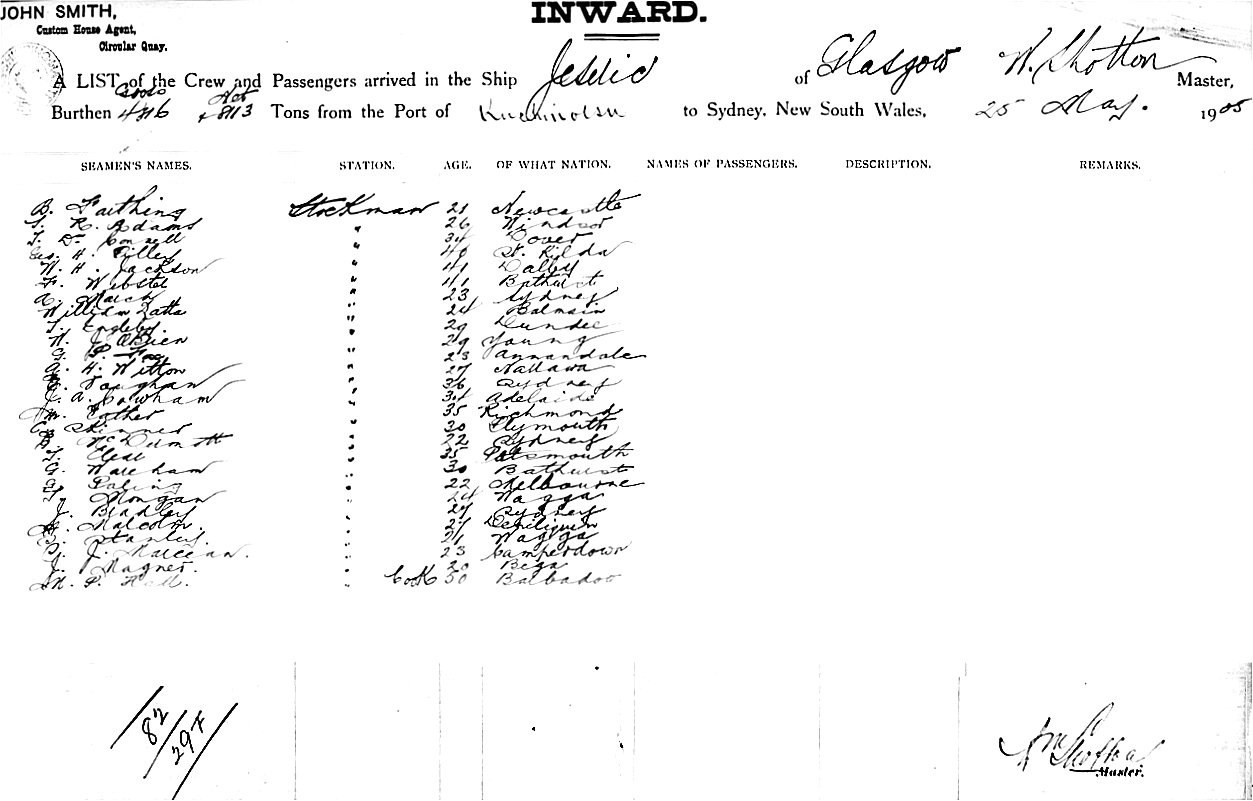 JOHN SMITH,
Custom House Agent,
Circular Quay.
INWARD.
A LIST of the Crew and Passengers arrived in the Ship Jeseric of Glasgow W. Shotton Master,
Burthen Tons from the Port of to Sydney, New South Wales, 25 May. 1905
SEAMEN'S NAMES. STATION. AGE. OF WHAT NATION. NAMES OF PASSENGERS. DESCRIPTION. REMARKS.
B. Farthing Stockman 21 Newcastle
T. R. Adams " 26 Windsor
T. D. Connell " 34 Dover
Geo. H. Pilley " St. Kilda
W. H. Jackson " 41 Dalby
F. Webster " 41 Bathurst
A. March " 23 Sydney
William Latta " 24 Balmain
T. Engleby " 29 Dundee
W. J. O'Brien " 29 Young
G. P. Fox " 23 Annandale
A. H. Witton " 27
E. Vaughan " 36 Sydney
J. A. Cowham " 34 Adelaide
Esther " 35 Richmond
C. Skinner " 30 Plymouth
McDermott " 22 Sydney
T. " 35 Portsmouth
G. Wareham " 30 Bathurst
G. Paling " 22 Melbourne
T. Mongan " 24 Wagga
J. Bradley " 27 Sydney
Malcolm. " 27 Deniliquin
Stanley. " 21 Wagga
J. " 23 Camperdown
J. Magner. " 20 Bega
M. P. Hall. " Cook 50 Barbadoo
82/297
Wm Shotton
Master.